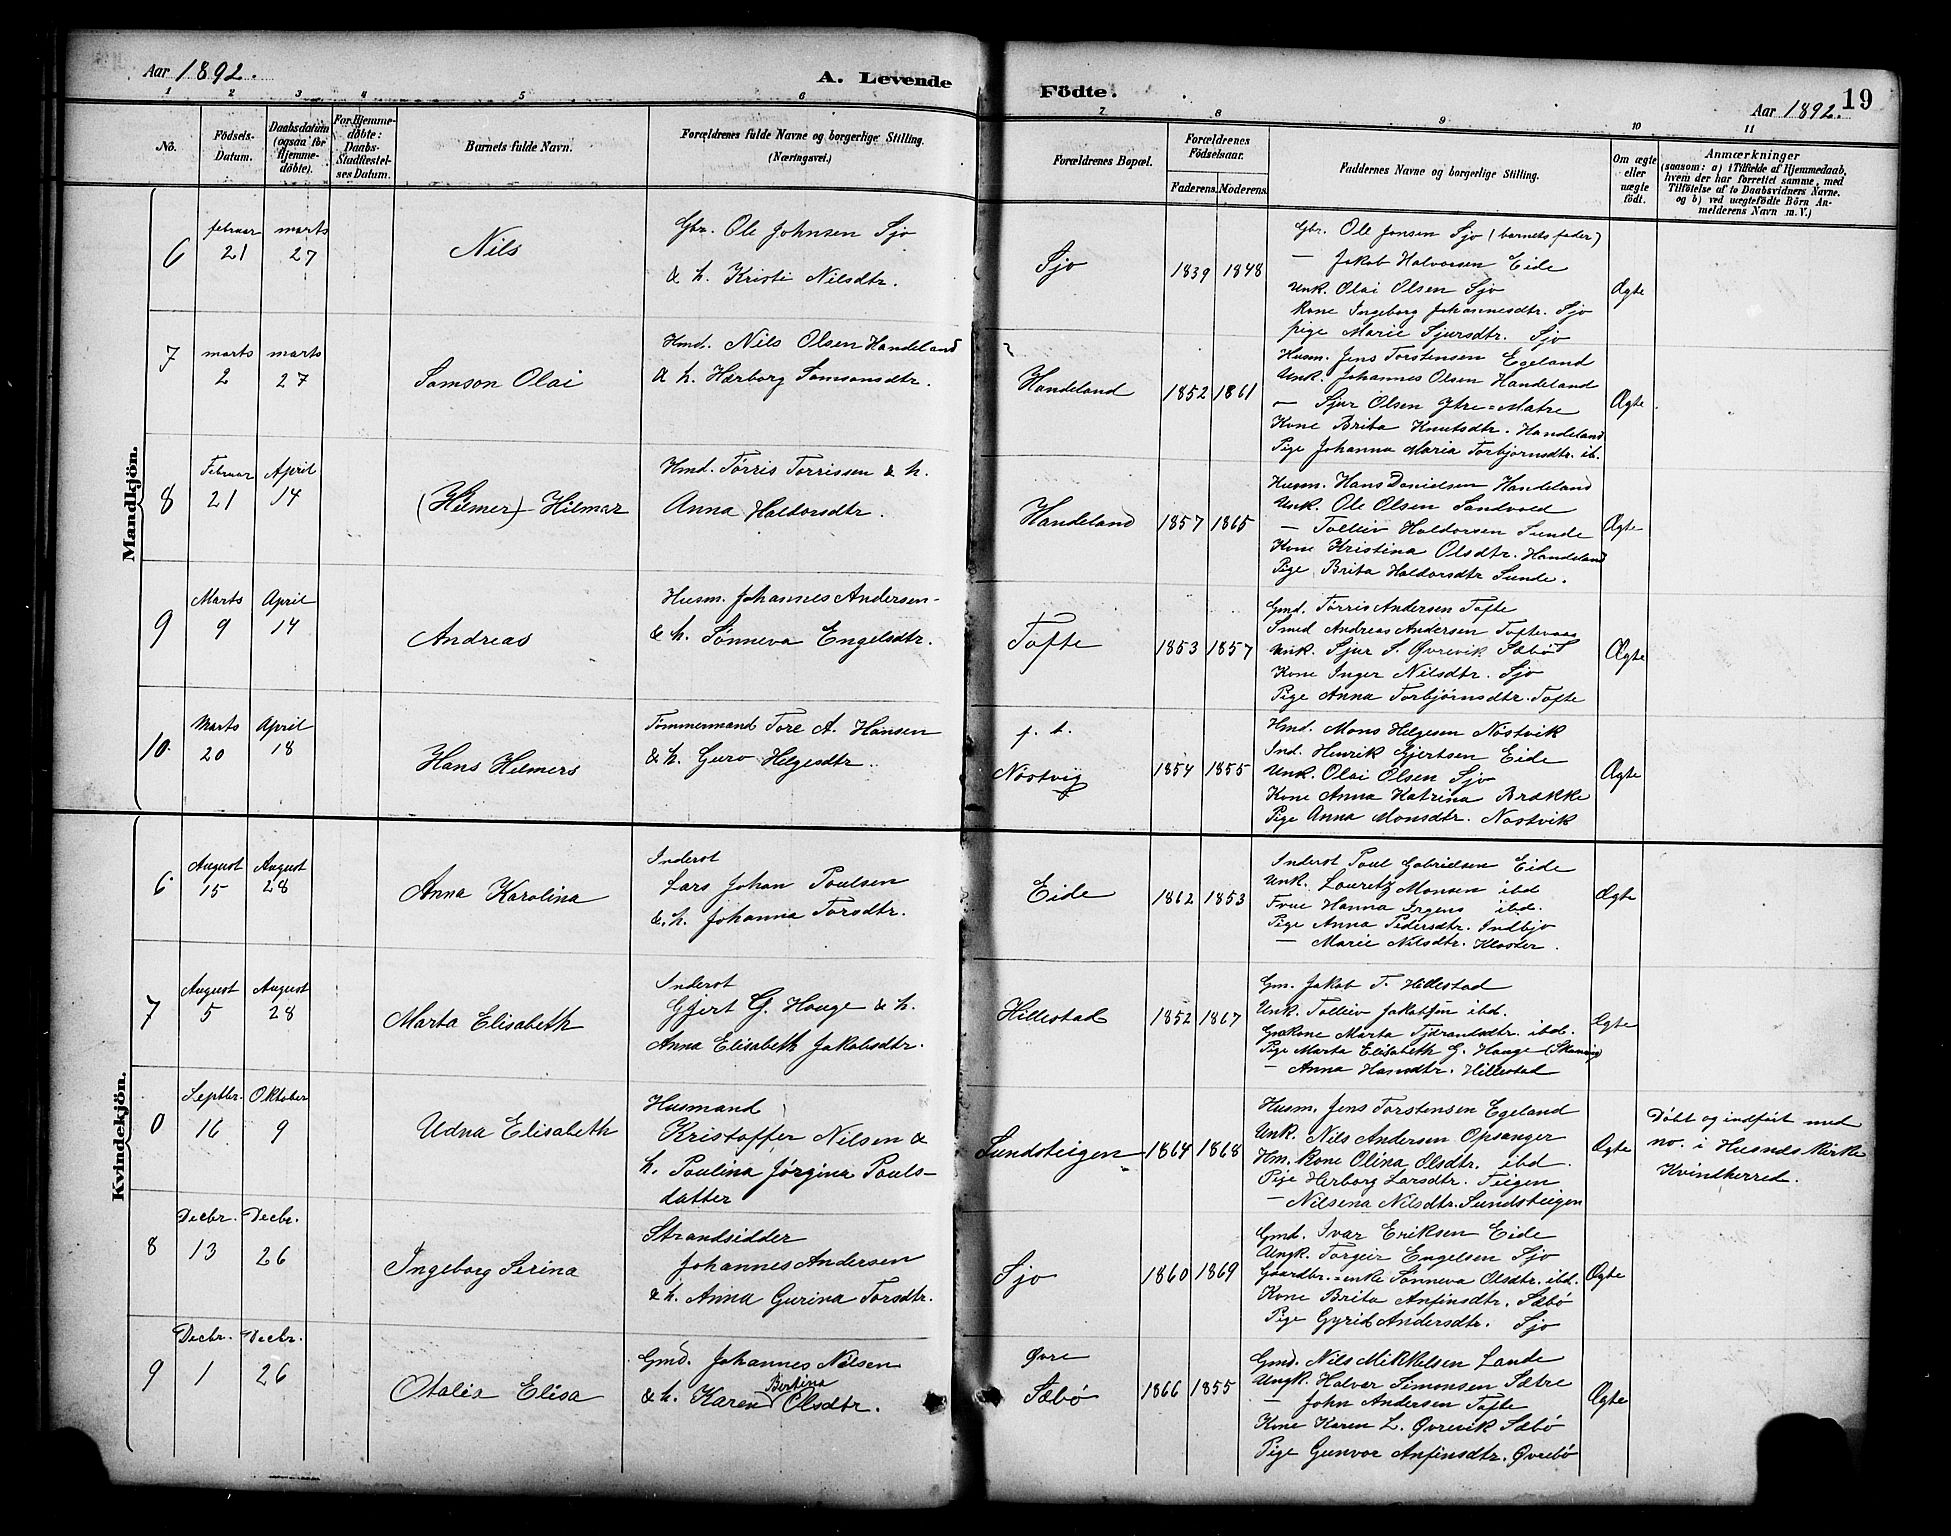 Aar 1892.
A. Levende
Födte.
Aar 1892.
19
1 2 3 4 5 6 7 8 9 10 11
No.
Födsels-Datum.
Daabsdatum (ogsaa for Hjemme-døbte).
For Hjemme-døbte: Daabs-Stadfæstel-ses Datum.
Barnets fulde Navn.
Forældrenes fulde Navne og borgerlige Stilling. (Næringsvei.)
Forældrenes Bopæl.
Forældrenes Födselsaar.
Faderens. Moderens.
Faddernes Navne og borgerlige Stilling.
Om ægte eller uægte födt.
Anmærkninger
(saasom: a) i Tilfælde af Hjemmedaab, hvem der har forrettet samme, med Tilföielse af to Daabsvidners Navne. og b) ved uægtefödte Börn An-melderens Navn m. V.)
Mandkjön.
6
februar 21
marts 27
Nils
Gbr. Ole Johnsen Sjo
& h. Kristi Nilsdtr.
Sjo
1839 1848
Gbr. Ole Jonsen Sjo (barnets fader)
— Jakob Halvorsen Eide
Unk. Olai Olsen Sjo
Kone Ingeborg Johannesdtr. Sjo
pige Marie Sjursdtr. Sjo
Ægte
7
marts 2
marts 27
Samson Olai
Hmd. Nils Olsen Handeland
& h. Hærborg Samsonsdtr.
Handeland
1852 1861
Husm. Jens Torstensen Egeland
Unk. Johannes Olsen Handeland
— Sjur Olsen Ytre=Matre
Kone Brita Knutsdtr. Handeland
Pige Johanna Maria Torbjornsdtr. ib.
Ægte
8
Februar 21
April 14
(Hilmer) Hilmar
Hmd. Tørris Torrissen & h.
Anna Haldorsdtr.
Handeland
1857 1865
Husm. Hans Danielsen Handeland
Unk. Ole Olsen Sandvold
— Tolleiv Haldorsen Sunde
Kone Kristina Olsdtr. Handeland
Pige Brita Haldorsdtr Sunde.
Ægte
9
Marts 9
April 14
Andreas
Husm. Johannes Andersen
& h. Sønneva Engelsdtr.
Tofte
1853 1857
Gmd. Tørris Andersen Tofte
Smed Andreas Andersen Toftevaag
Unk. Sjur S. Øvrevik Sæbø
Kone Inger Nilsdtr. Sjo
Pige Anna Torbjørnsdtr. Tofte
Ægte
10.
Marts 20
April 18
Hans Hilmers
Tømmermand Tore A. Hansen
& h. Guro Helgesdtr.
p. t.
Nøstvig
1854 1855
Hmd. Mons Helgesen Nøstvik
Ind. Henrik Gjertsen Eide
Unk. Olai Olsen Sjo
Kone Anna Katrina Brække
Pige Anna Monsdtr. Nøstvik
Ægte
Kvindekjön.
6
August 15
August 28
Anna Karolina
Inderst
Lars Johan Poulsen
& h. Johanna Torsdtr.
Eide
1862 1853
Inderst Poul Gabrielsen Eide
Unk. Lauretz Monsen ibd
Frue Hanna Irgens ibd.
Pige Anna Pedersdtr. Indbjo
— Marie Nilsdtr. Kloster.
Ægte
7
August 5
August 28
Marta Elisabeth
Inderst
Gjert G. Hauge & h.
Anna Elisabeth Jakobsdtr.
Hillestad
1852 1867
Gm. Jakob T. Hillestad
Unk. Tolleiv Jakobsøn ibd.
Marta Tjerandsdtr. ibd.
Pige Marta Elisabeth G. Hauge
— Anna Hansdtr. Hillestad
Ægte
0
Septbr. 16
Oktober 9
Udna Elisabeth
Husmand
Kristoffer Nilsen &
h. Paulina Jørgine Pouls-
datter
Sundsteigen
1864 1868
Husm. Jens Torstensen Egeland
Unk. Nils Andersen Opsanger
Hm. Kone Olina Olsdtr. ibd.
Pige Herborg Larsdtr. Teigen
— Nilsena Nilsdtr. Sundsteigen
Ægte
Døbt og indført med
no. i Husnds Kirke
Kvindherred.
8
Decbr. 13
Decbr. 26
Ingeborg Serina
Strandsidder
Johannes Andersen
& h. Anna Gurina Torsdtr.
Sjo
1860 1869
Gmd. Ivar Eriksen Eide
Ungk. Torgeir Engelsen Sjo
Gaardbr.=enke Sønneva Olsdtr. ibd.
Kone Brita Anfinsdtr. Sæbø
Pige Gyrid Andersdtr. Sjo
Ægte
9
Decbr. 1
Decbr. 26
Otalia Elisa
Gmd. Johannes Nilsen
& h. Karen Bertina Olsdtr.
Øvre
Sæbø
1866 1855
Gmd. Nils Mikkelsen Lande
Ungk. Halvor Simonsen Sætre
— John Andersen Tofte
Kone Karen L. Øvrevik Sæbø
Pige Gunvor Anfinsdtr. Øvrebø
Ægte